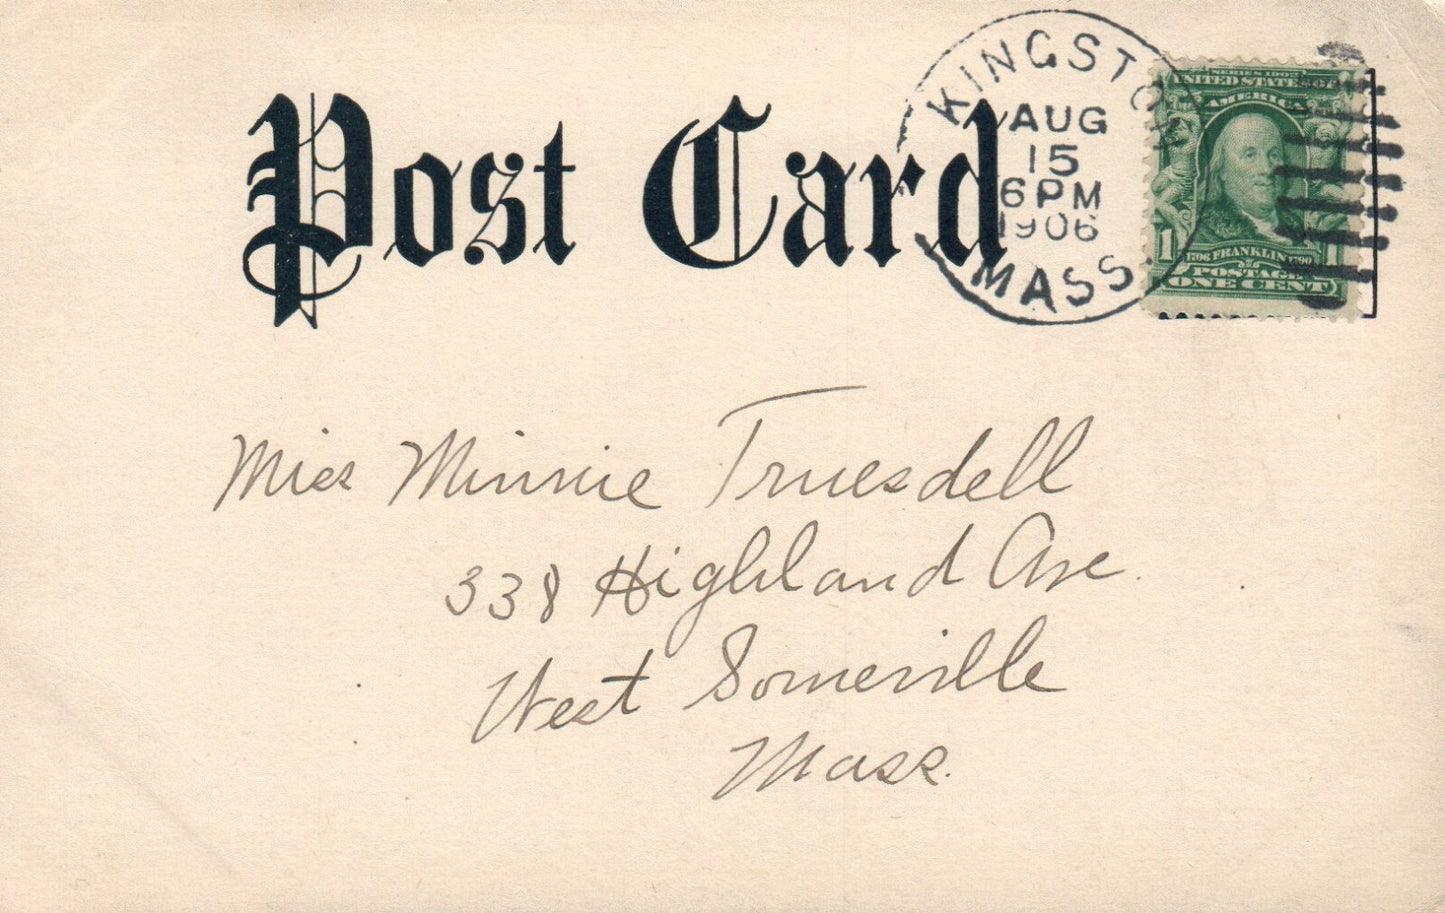 Post Card
KINGSTON
AUG
15
6 PM
1906
MASS.
SERIES 1902
UNITED STATES OF
AMERICA
1706 FRANKLIN 1790
1 1
POSTAGE
ONE CENT
Miss Minnie Truesdell
338 Highland Ave.
West Somerville
Mass.